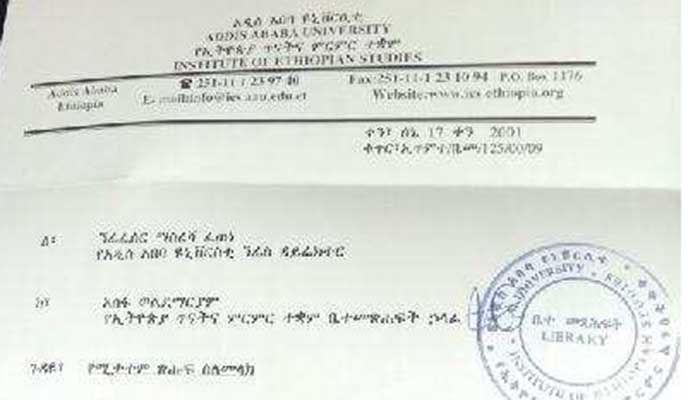 አዲስ አበባ ዩኒቨርሲቲ
ADDIS ABABA UNIVERSITY
የኢትዮጵያ ጥናትና ምርምር ተቋም
INSTITUTE OF ETHIOPIAN STUDIES
Addis Ababa
Ethiopia
☎ 251-11-1 23 97 40
E-mail:info@ies.aau.edu.et
Fax:251-11-1 23 10 94 P.O. Box 1176
Website:www.ies-ethiopia.org
ቀን፡ ሰኔ 17 ቀን 2001
ቁጥር፡ኢጥምተ/ቤመ/125/00/09
ለ፡ ፕሮፌሰር ማስረሻ ፈጠነ
የአዲስ አበባ ዩኒቨርስቲ ዳይሬክተር
ከ፡ አበፋ ወልደማርያም
የኢትዮጵያ ጥናትና ምርምር ተቋም ቤተመጽሐፍት ኃላፊ
ጉዳዩ፡ የሚታተም ጽሑፍ ስለመላክ
UNIVERSITY
ቤተ መጻሕፍት
LIBRARY
INSTITUTE OF ETHIOPIAN STUDIES